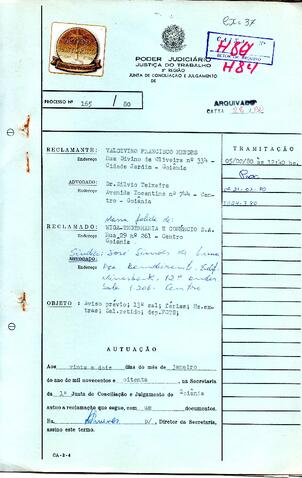 Cx. 37
CAIXA Nº
H84
SETOR DE ARQUIVO
H84
PODER JUDICIÁRIO
JUSTIÇA DO TRABALHO
REGIÃO
JUNTA DE CONCILIAÇÃO E JULGAMENTO
DE
PROCESSO Nº 165 / 80
ARQUIVADO
CAIXA
RECLAMANTE: VALDIVINO FRANCISCO MENDES
Endereço Rua Divino de Oliveira nº 334 -
Cidade Jardim - Goiânia
ADVOGADO: Dr. Silvio Teixeira
Endereço Avenida Tocantins nº 744 - Cen-
tro - Goiânia
Massa falida de:
RECLAMADO: WIGA-ENGENHARIA E COMÉRCIO S.A.
Endereço Rua 29 nº 261 - Centro
Goiânia
Síndico: José
ADVOGADO:
Endereço
12º andar
Sala 1.206. Centro
OBJETO: Aviso prévio; 13º sal; férias; Hs.ex-
tras; Sal.retido; dep.FGTS;
TRAMITAÇÃO
05/02/80 às 12:40 hs.
AUTUAÇÃO
Aos vinte e dois dias do mês de janeiro
do ano de mil novecentos e oitenta, na Secretaria
da 1ª Junta de Conciliação e Julgamento de Goiânia
autuo a reclamação que segue, com um documentos.
Eu, p/, Diretor da Secretaria,
assino este termo.